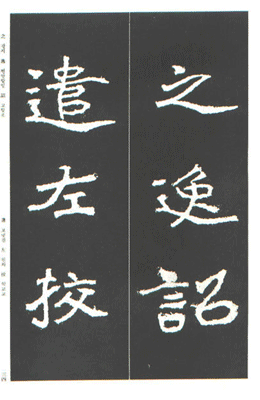 之逸詔
遣左挍